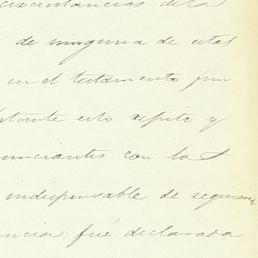 circunstancias de la
de ninguna de estas
en el testamento fun
obstante esto repito y
con las
indispensable de seguir
ncia: fué declarada